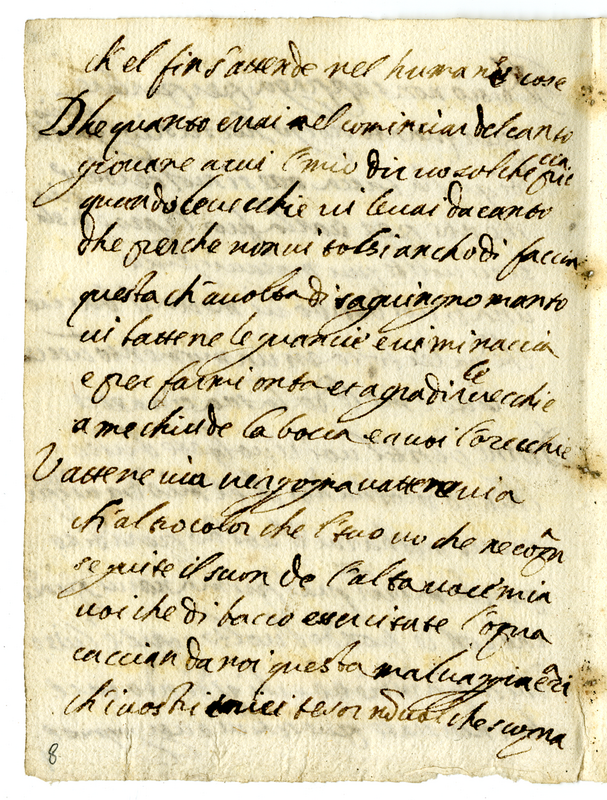 ch'el fin s'attende nel humane cose
Dhe quanto errai nel cominciar del canto
giovane a cui l'mio dir vo sol che piaccia
quando le vecchie vi levai da canto
dhe perche non vi tolsi ancho di faccia
questa ch'avolta di sanguingno manto
vi batte ne le guancie e vi minaccia
e per farmi onta et agradir le vecchie
a me chiude la bocca e a voi l'orecchie
Vattene via vergogna vattene via
ch'altro color che l'tuo vo che
seguite il suon de l'alta voce mia
voi che di bacco essercitate l'opra
cacciam da noi questa malvaggia
ch'i vostri e i miei tesor vuol che scopra
8